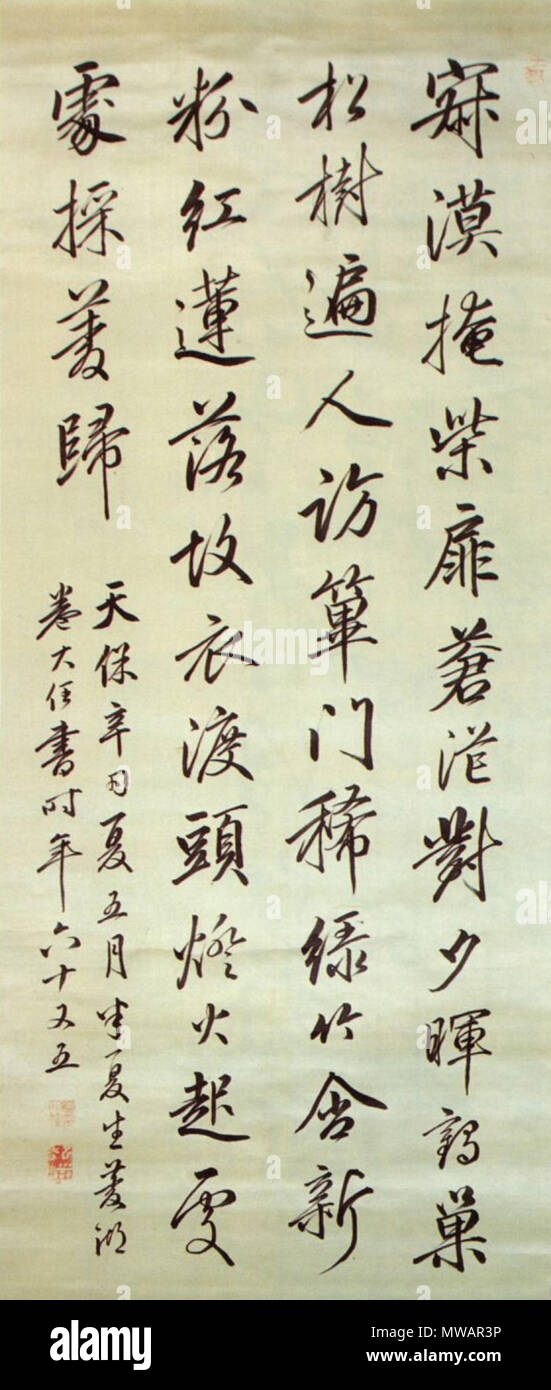 寂漠掩柴扉蒼茫對夕暉鶴巢
松樹遍人訪篳門稀綠竹含新
粉紅蓮落故衣渡頭燈火起處
處採菱歸
天保辛丑夏五月半夏生菱湖
卷大任書时年六十又五
alamy
Image ID: MWAR3P
www.alamy.com